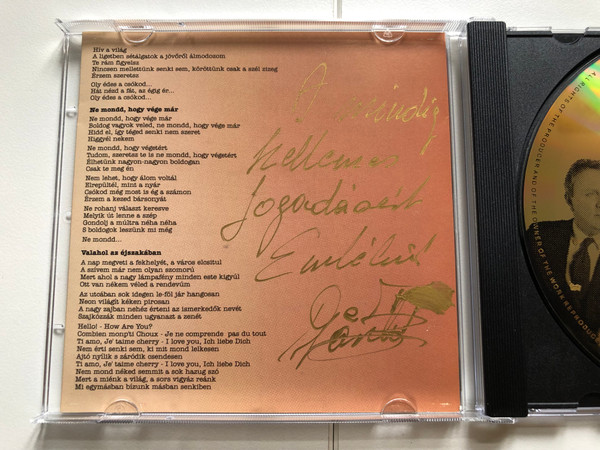 Hív a világ
A ligetben sétálgatok a jövőről álmodozom
Te rám figyelsz
Nincsen mellettünk senki sem, köröttünk csak a szél zizeg
Érzem szeretsz
Oly édes a csókod...
Hát nézd a fát, az égig ér...
Oly édes a csókod...
Ne mondd, hogy vége már
Ne mondd, hogy vége már
Boldog vagyok veled, ne mondd, hogy vége már
Hidd el, így téged senki nem szeret
Higgyél nekem
Ne mondd, hogy végetért
Tudom, szeretsz te is ne mondd, hogy végetért
Élhetünk nagyon-nagyon boldogan
Csak te meg én
Nem lehet, hogy álom voltál
Elrepültél, mint a nyár
Csókod még most is ég a számon
Érzem a kezed bársonyát
Ne rohanj választ keresve
Melyik út lenne a szép
Gondolj a múltra néha néha
S boldogok leszünk mi még
Ne mondd...
Valahol az éjszakában
A nap megveti a fekhelyét, a város elcsitul
A szívem már nem olyan szomorú
Mert ahol a nagy lámpafény minden este kigyúl
Ott van nékem véled a rendevúm
Az utcában sok idegen le-föl jár hangosan
Neon világít kéken pirosan
A nagy zajban nehéz érteni az ismerkedők nevét
Szajkózzák minden ugyanazt a zenét
Hello! - How Are You?
Combien monp'ti Choux - Je ne comprende pas du tout
Ti amo, Je' taime cherry - I love you, Ich liebe Dich
Nem érti senki sem, ki mit mond lelkesen
Ajtó nyílik s záródik csendesen
Ti amo, Je' taime cherry - I love you, Ich liebe Dich
Nem mond néked semmit a sok hazug szó
Mert a miénk a világ, a sors vigyáz reánk
Mi egymásban bízunk másban senkiben
mindig
kellemes
fogadásért
Emlékül!
ALL RIGHTS OF THE PRODUCER AND OF THE OWNER OF THE WORK REPRODUCED